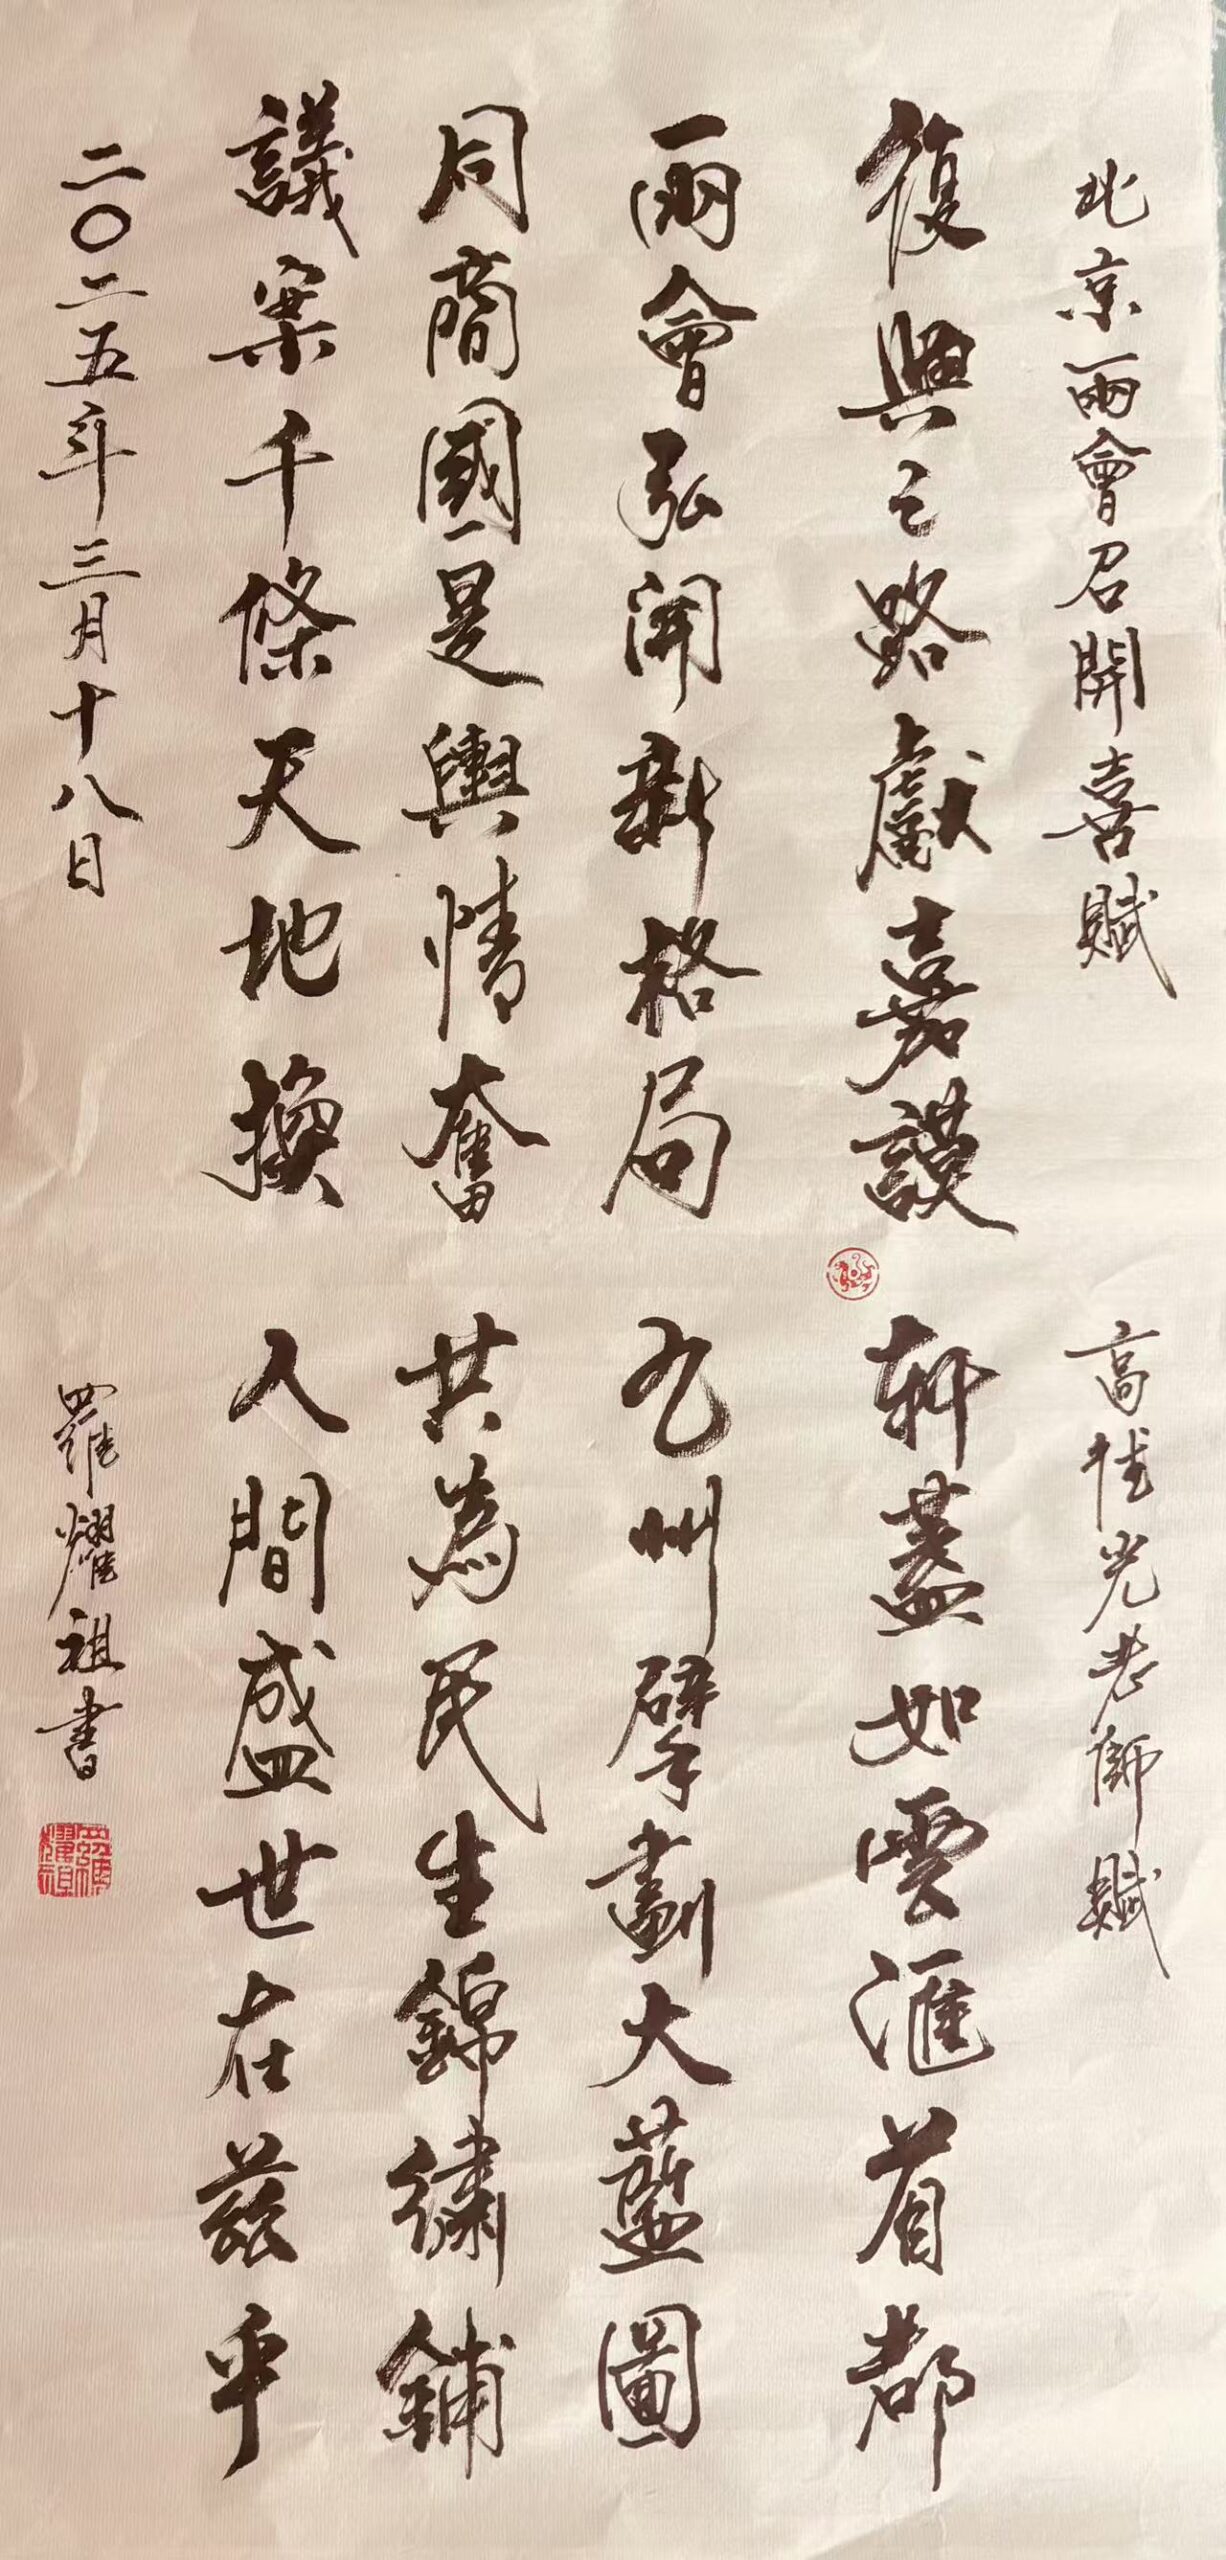 北京兩會召開喜賦 高陸光老師賦
復興之路獻嘉謨 軒蓋如雲滙首都
兩會弘開新格局 九州擘劃大藍圖
同商國是輿情奮 共為民生錦繡鋪
議案千條天地換 人間盛世在茲乎
二〇二五年三月十八日 羅耀祖書
羅耀祖